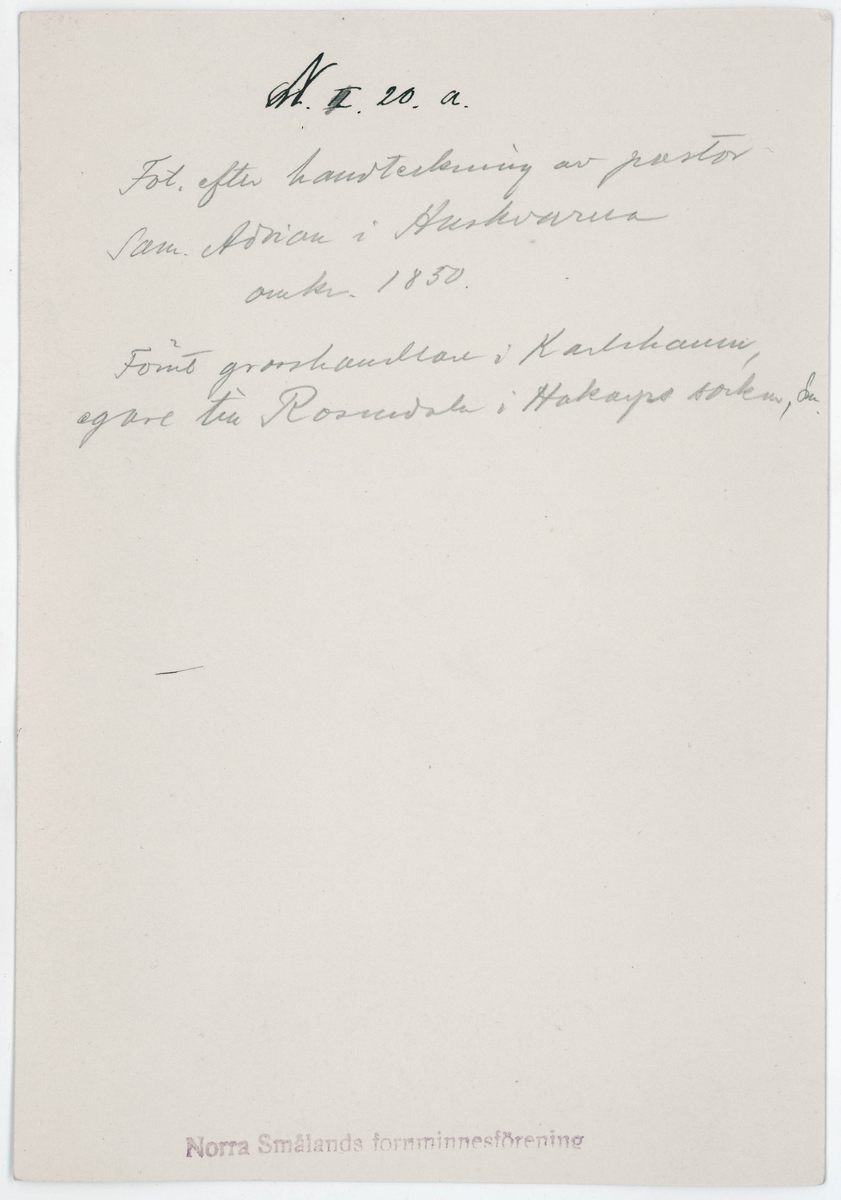 N. II. 20. a.
Fot. efter handteckning av pastor
Sam. Adrian i Huskvarna
omkr. 1850.
Förut grosshandlare i Karlshamn,
egare till Rosendala i Hakarps socken,
Norra Smålands fornminnesförening